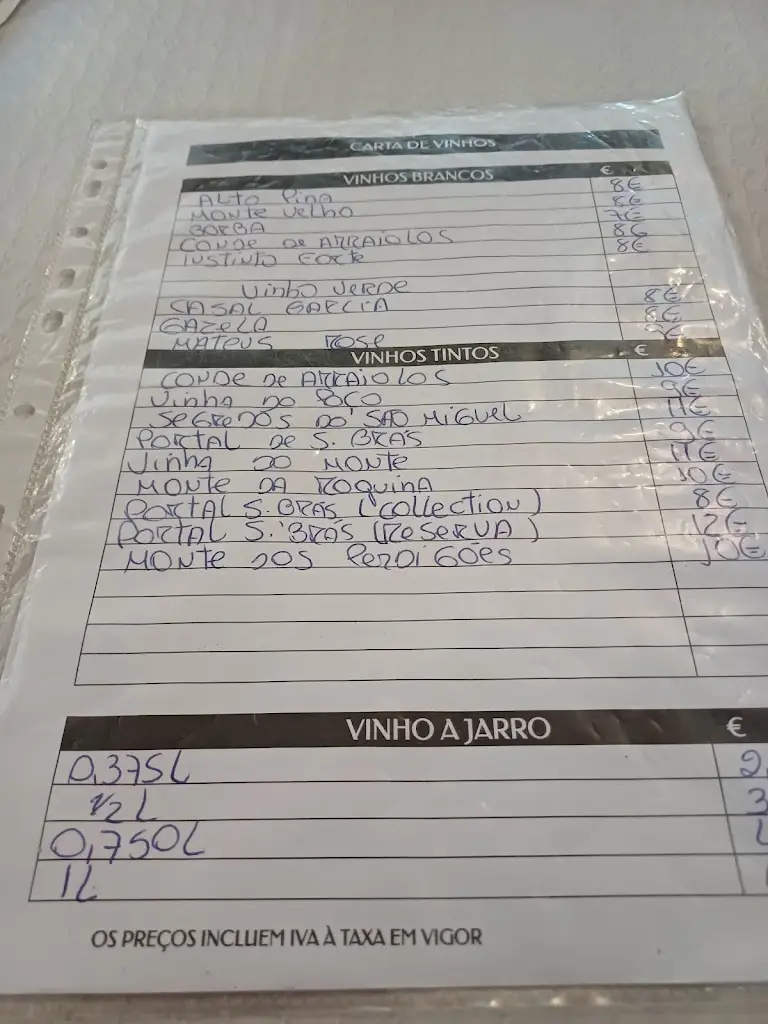 CARTA DE VINHOS
VINHOS BRANCOS €
ALTO PINA 8€
MONTE VELHO 8€
BORBA 7€
CONDE DE ARRAIOLOS 8€
INSTINTO FORTE 8€
VINHO VERDE
CASAL GARCIA 8€
GAZELA 8€
MATEUS ROSE 9€
VINHOS TINTOS €
CONDE DE ARRAIOLOS 10€
VINHA DO POÇO 9€
SEGREDOS DO SÃO MIGUEL 11€
PORTAL DE S. BRÁS 9€
VINHA DO MONTE 11€
MONTE DA ROQUINA 10€
PORTAL S. BRÁS (COLLECTION) 8€
PORTAL S. BRÁS (RESERVA) 12€
MONTE DOS PERDIGÕES 10€
VINHO A JARRO €
0,375L 2,
1/2 L 3
0,750L
1L
OS PREÇOS INCLUEM IVA À TAXA EM VIGOR